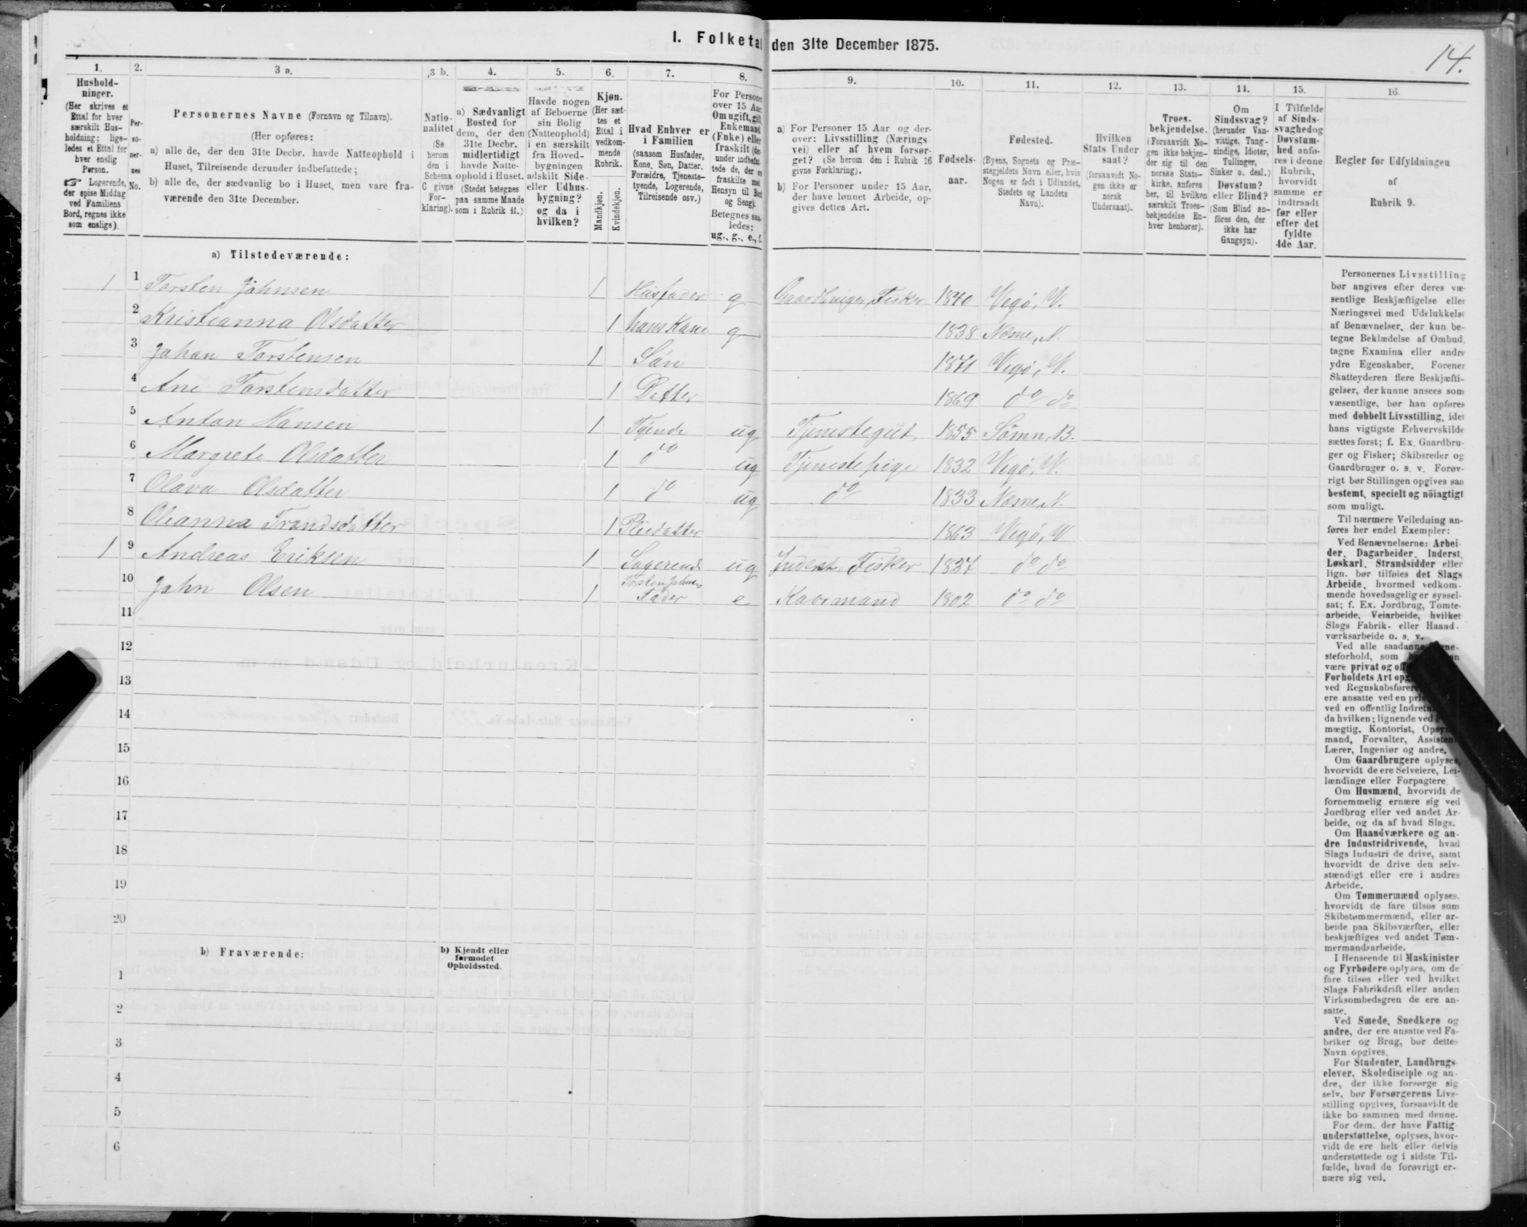 I. Folketal den 31te December 1875.
14.
1.
Husholdninger.
(Her skrives et
Ettal for hver
særskilt Husholdning;
ligeledes et Ettal for
hver enslig
Person.
☞ Logerende,
der spise Middag
ved Familiens
Bord, regnes ikke
som enslige).
2.
Personernes
No.
3 a.
Personernes Navne (Fornavn og Tilnavn).
(Her opføres:
a) alle de, der den 31te Decbr. havde Natteophold i
Huset, Tilreisende derunder indbefattede;
b) alle de, der sædvanlig bo i Huset, men vare fraværende
den 31te December.
3 b.
Nationalitet
(Se
herom
den i
Schema
C givne
Forklaring).
4.
a) Sædvanligt
Bosted for
dem, der den
31te Decbr.
midlertidigt
havde Natteophold
i Huset.
(Stedet betegnes
paa samme Maade
som i Rubrik 11.)
5.
Havde nogen
af Beboerne
sin Bolig
(Natteophold)
i en særskilt
fra Hovedbygningen
adskilt Side- eller
Udhusbygning?
og da i
hvilken?
6.
Kjøn.
(Her sættes
et
Ettal i
vedkommende
Rubrik.
Mandkjøn.
Kvindekjøn.
7.
Hvad Enhver er
i Familien
(saasom Husfader,
Kone, Søn, Datter,
Forældre, Tjenestetyende,
Logerende,
Tilreisende osv.)
8.
For Personer
over 15 Aar
Om ugift, gift,
Enkemand
(Enke) eller
fraskilt
Betegnes
ledes:
ug., g., e., f.
9.
a) For Personer 15 Aar og derover:
Livsstilling (Næringsvei)
eller af hvem forsørget?
(Se herom den i Rubrik 16
givne Forklaring).
b) For Personer under 15 Aar,
der have lønnet Arbeide, opgives
dettes Art.
10.
Fødselsaar.
11.
Fødested.
(Byens, Sognets og Præstegjeldets
Navn eller, hvis
Nogen er født i Udlandet,
Stedets og Landets
Navn).
12.
Hvilken
Stats Undersaat?
(forsaavidt Nogen
ikke er
norsk
Undersaat).
13.
Troesbekjendelse.
(Forsaavidt Nogen
ikke bekjender
sig til den
norske Statskirke,
anføres
her, til hvilken
særskilt Troesbekjendelse
Enhver
henhører).
14.
Om
Sindssvag?
(herunder Vanvittige,
Tungsindige,
Idioter,
Tullinger,
Sinker o. desl.)
Døvstum?
eller Blind?
(Som Blind anføres
den, der
ikke har
Gangsyn).
15.
I Tilfælde
af Sindssvaghed
og
Døvstumhed
anføres
i denne
Rubrik,
hvorvidt
samme er
indtraadt
før eller
efter det
fyldte
4de Aar.
16.
Regler for Udfyldningen
af
Rubrik 9.
a) Tilstedeværende:
1 1 Torsten Johnsen 1 Husfader g Gaardbruger, Fisker 1840 Vegø, V.
2 Kristianna Olsdatter 1 hans Kone g 1838 Næsne, N.
3 Johan Torstensen 1 Søn 1871 Vegø, V.
4 Ane Torstensdatter 1 Datter 1869 do do
5 Anton Hansen 1 Tyende ug Tjenestegut 1855 Sømn, B.
6 Margrete Olsdatter 1 do ug Tjenestepige 1832 Vegø, V.
7 Olava Olsdatter 1 do ug do 1833 Næsne, N.
8 Oleanna Trondsdatter 1 Pleiedatter 1863 Vegø, V
1 9 Andreas Eriksen 1 Logerende ug Inderst, Fisker 1837 do do
10 John Olsen 1 Torsten Johnsens Fader e Kaarmand 1802 do do
11
12
13
14
15
16
17
18
19
20
b) Fraværende:
b) Kjendt eller
formodet
Opholdssted.
1
2
3
4
5
6
Personernes Livsstilling
bør angives efter deres væsentlige
Beskjæftigelse eller
Næringsvei med Udelukkelse
af Benævnelser, der kun betegne
Beklædelse af Ombud,
tagne Examina eller andre
ydre Egenskaber. Forener
Skatteyderen flere Beskjæftigelser,
der kunne ansees som
væsentlige, bør han opføres
med dobbelt Livsstilling, idet
hans vigtigste Erhvervskilde
sættes først; f. Ex. Gaardbruger
og Fisker; Skibsreder og
Gaardbruger o. s. v. Forøvrigt
bør Stillingen opgives saa
bestemt, specielt og nøiagtigt
som muligt.
Til nærmere Veiledning anføres
her endel Exempler:
Ved Benævnelserne: Arbeider,
Dagarbeider, Inderst,
Løskarl, Strandsidder eller
lign. bør tilføies det Slags
Arbeide, hvormed vedkommende
hovedsagelig er sysselsat;
f. Ex. Jordbrug, Tomtearbeide,
Veiarbeide, hvilket
Slags Fabrik- eller Haandværksarbeide
o. s. v.
Ved alle saadanne
være privat og
Forholdets Art
ved Regnskabsførere
ere ansatte ved en
ved en offentlig
da hvilken; lignende ved
mægtig, Kontorist, Opsynsmand,
Forvalter, Assistent,
Lærer, Ingeniør og andre.
Om Gaardbrugere oplyses,
hvorvidt de ere Selveiere, Leilændinge
eller Forpagtere.
Om Husmænd, hvorvidt de
fornemmelig ernære sig ved
Jordbrug eller ved andet Arbeide,
og da af hvad Slags.
Om Haandværkere og andre
Industridrivende, hvad
Slags Industri de drive, samt
hvorvidt de drive den selvstændigt
eller ere i andres
Arbeide.
Om Tømmermænd oplyses,
hvorvidt de fare tilsøs som
Skibstømmermænd, eller arbeide
paa Skibsværfter, eller
beskjæftiges ved andet Tømmermandsarbeide.
I Henseende til Maskinister
og Fyrbødere oplyses, om de
fare tilsøs eller ved hvilket
Slags Fabrikdrift eller anden
Virksomhedsgren de ere ansatte.
Ved Smede, Snedkere og
andre, der ere ansatte ved Fabriker
og Brug, bør dettes
Navn opgives.
For Studenter, Landbrugselever,
Skoledisciple og andre,
der ikke forsørge sig
selv, bør Forsørgerens Livsstilling
opgives, forsaavidt de
ikke bo sammen med denne.
For dem, der have Fattigunderstøttelse,
oplyses, hvorvidt
de ere helt eller delvis
understøttede og i sidste Tilfælde,
hvad de forøvrigt ernære
sig ved.